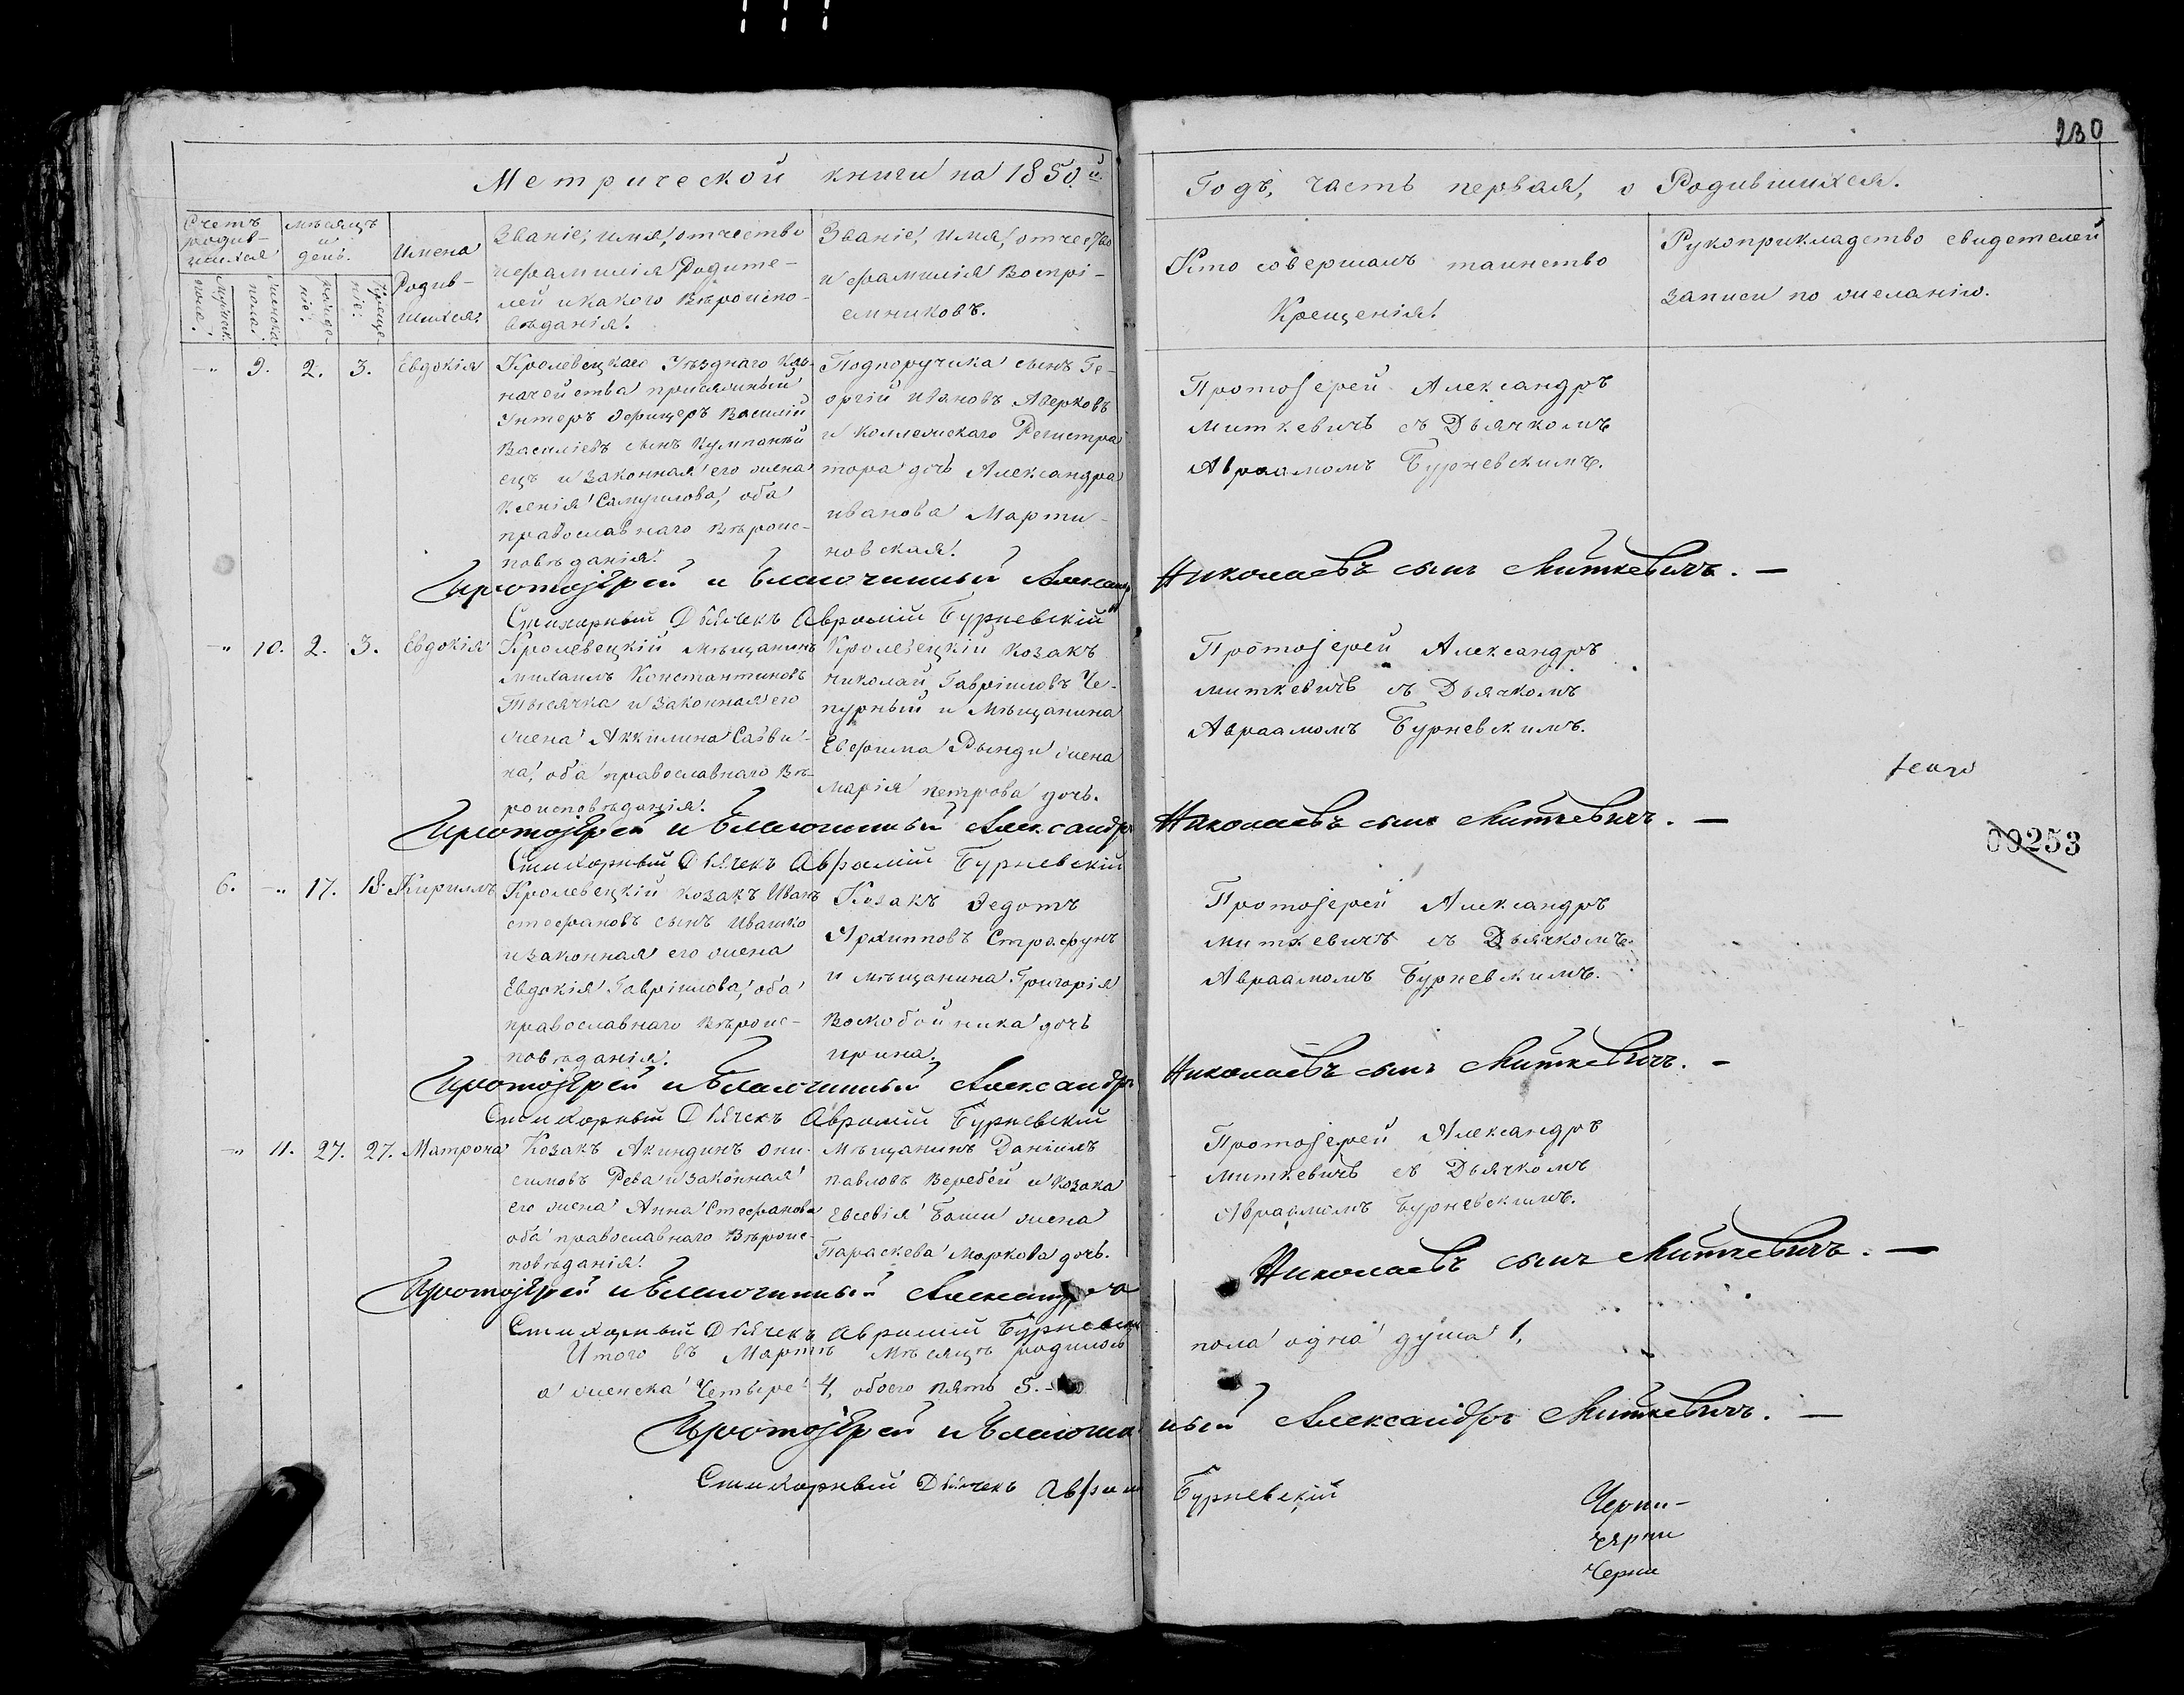 230
Метрической книги на 1850.й
Годъ, часть первая, о Родившихся.
Счетъ родив-шихся
Мужеск. пола.
Женска. пола.
мѣсяцъ и день.
рожде-ніе.
Креще-ніе.
Имена Родив-шихся.
Званіе, имя, отчество
и фамилія Родите-
лей и какого Вѣроиспо-
вѣданія.
Званіе, имя, отчество
и фамилія Воспрі-
емниковъ.
Кто совершалъ таинство
Крещенія.
Рукоприкладство свидетелей
записи по желанію.
-„ 9. 2. 3. Евдокія
Кролевецкаго Уѣзднаго Каз-
начейства присяжный
Унтеръ Офицеръ Василій
Василіевъ сынъ Кумпаный
ецъ и законная его жена
Ксенія Самуилова, оба
православнаго Вѣроис-
повѣданія.
Подпоручика сынъ Ге-
оргій Ивановъ Аверковъ
и Коллежскаго Регистра
тора дочь Александра
Иванова Марти-
новская.
Протоіерей Александръ
Миткевичъ съ Дьячкомъ
Авраамомъ Бурневскимъ.
Протоіерей и Благочинный Александръ Николаевъ сынъ Миткевичъ. —
Стихарный Дьячекъ Авраміій Бурневскій
-„ 10. 2. 3. Евдокія
Кролевецкій мѣщанинъ
Михаилъ Константиновъ
Тысячка и законная его
жена Аккилина Савви-
на, оба православнаго Вѣ-
роисповѣданія.
Кролевецкій козакъ
Николай Гавріиловъ Че-
пурный и Мѣщанина
Евфима Рынди жена
Марія Петрова дочь.
Протоіерей Александръ
Миткевичъ съ Дьячкомъ
Авраамомъ Бурневскимъ.
Протоіерей и Благочинный Александръ Николаевъ сынъ Миткевичъ. —
Стихарный Дьячекъ Аврамій Бурневскій
00253
6. -„ 17. 18. Кириллъ
Кролевецкій козакъ Иванъ
Стефановъ сынъ Ивашко
и законная его жена
Евдокія Гавріилова, оба
православнаго Вѣроис-
повѣданія.
Козакъ Федотъ
Архипповъ Страфунъ
и мѣщанина Григорія
Воскобойника дочь
Ирина.
Протоіерей Александръ
Миткевичъ съ Дьячкомъ
Авраамомъ Бурневскимъ.
Протоіерей и Благочинный Александръ Николаевъ сынъ Миткевичъ. —
Стихарный Дьячекъ Аврамій Бурневскій
-„ 11. 27. 27. Матрона
Козакъ Акиндинъ Они-
симовъ Рева и законная
его жена Анна Стефанова
оба православнаго Вѣроис-
повѣданія.
Мѣщанинъ Даніилъ
Павловъ Веребей и козака
Евсевія Баши жена
Параскева Маркова дочь.
Протоіерей Александръ
Миткевичъ съ Дьячкомъ
Авраамомъ Бурневскимъ.
Протоіерей и Благочинный Александръ Николаевъ сынъ Миткевичъ. —
Стихарный Дьячекъ Аврамій Бурневскій
Итого въ Мартѣ мѣсяцѣ родилось пола одна душа 1,
а женска Четыре 4, обоего пять 5.
Протоіерей и Благочинный Александръ Миткевичъ. —
Стихарный Дьячекъ Аврамій Бурневскій
Черни-
Черни
Черни